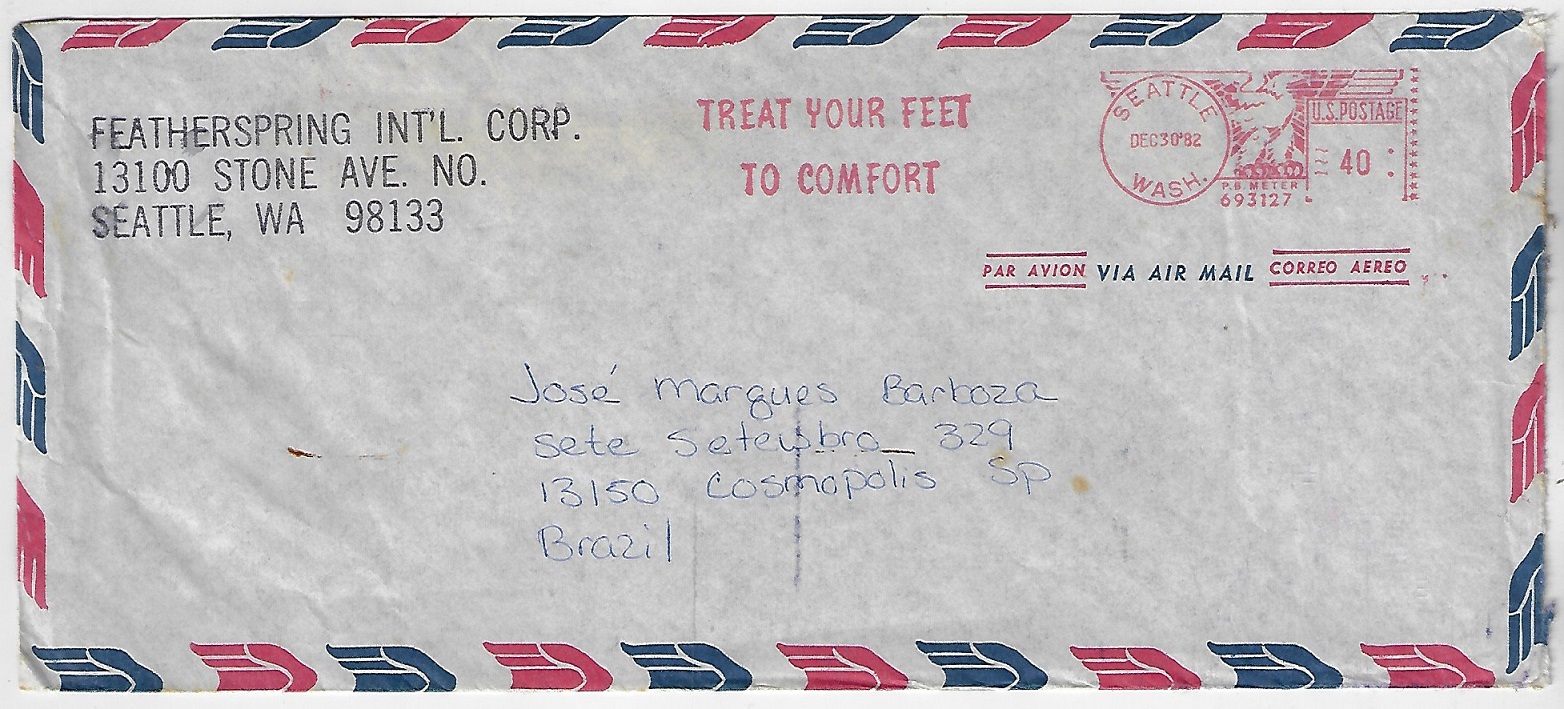 FEATHERSPRING INT'L. CORP.
13100 STONE AVE. NO.
SEATTLE, WA 98133
TREAT YOUR FEET
TO COMFORT
SEATTLE
DEC30'82
WASH.
U.S. POSTAGE
40
P.B. METER
693127
PAR AVION VIA AIR MAIL CORREO AEREO
José Marques Barboza
Sete Setembro 329
13150 Cosmopolis SP
Brazil